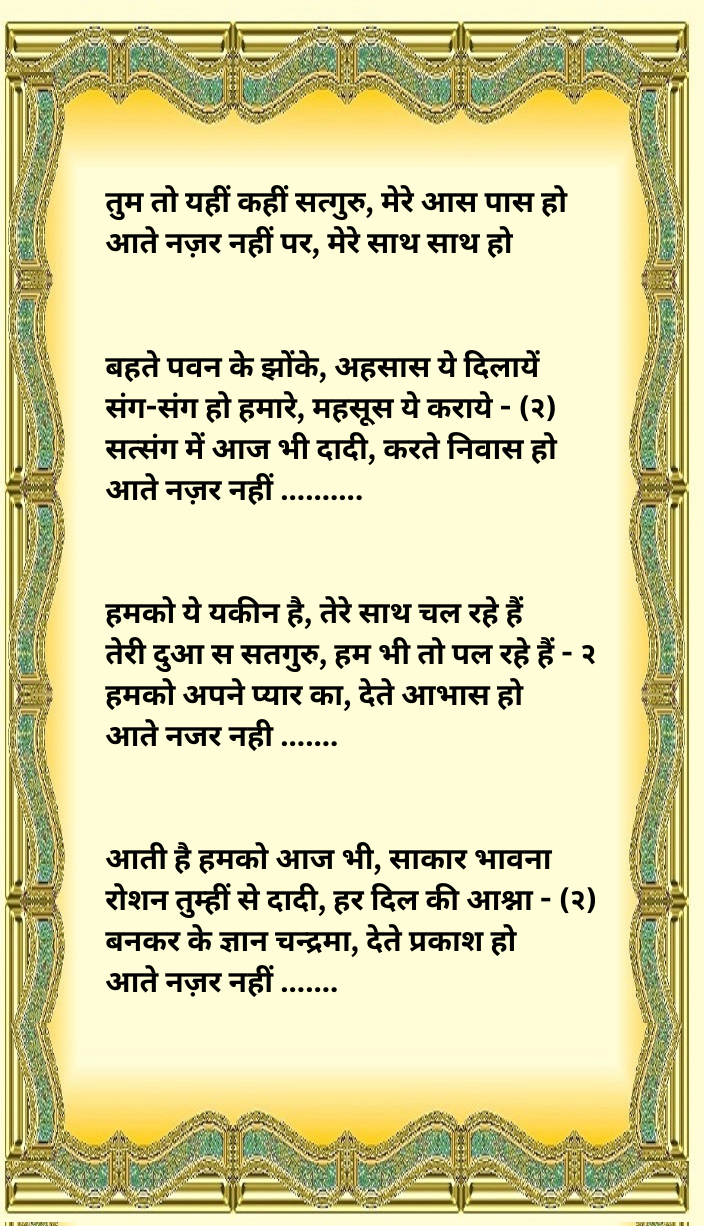 तुम तो यहीं कहीं सत्गुरु, मेरे आस पास हो
आते नज़र नहीं पर, मेरे साथ साथ हो
बहते पवन के झोंके, अहसास ये दिलायें
संग-संग हो हमारे, महसूस ये कराये - (२)
सत्संग में आज भी दादी, करते निवास हो
आते नज़र नहीं ..........
हमको ये यकीन है, तेरे साथ चल रहे हैं
तेरी दुआ स सतगुरु, हम भी तो पल रहे हैं - २
हमको अपने प्यार का, देते आभास हो
आते नजर नही .......
आती है हमको आज भी, साकार भावना
रोशन तुम्हीं से दादी, हर दिल की आश्ना - (२)
बनकर के ज्ञान चन्द्रमा, देते प्रकाश हो
आते नज़र नहीं .......